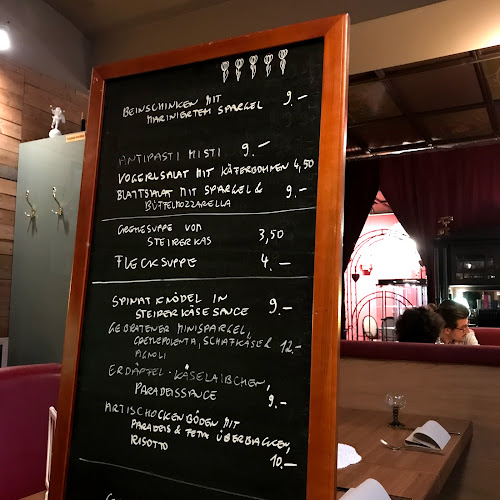 BEINSCHINKEN MIT
MARINIERTEM SPARGEL 9.—
ANTIPASTI MISTI 9.—
VOGERLSALAT MIT KÄFERBOHNEN 4,50
BLATTSALAT MIT SPARGEL & 9.—
BÜFFELMOZZARELLA
CREMESUPPE VON
STEIRERKAS 3,50
FLECKSUPPE 4.—
SPINAT KNÖDEL IN
STEIRERKÄSESAUCE 9.—
GEBRATENER MINISPARGEL,
CREMEPOLENTA, SCHAFKÄSE& 12.—
AGNOLI
ERDÄPFEL-KÄSELAIBCHEN,
PARADEISSAUCE 9.—
ARTISCHOCKENBÖDEN MIT
PARADEIS & FETA ÜBERBACKEN,
RISOTTO 10.—